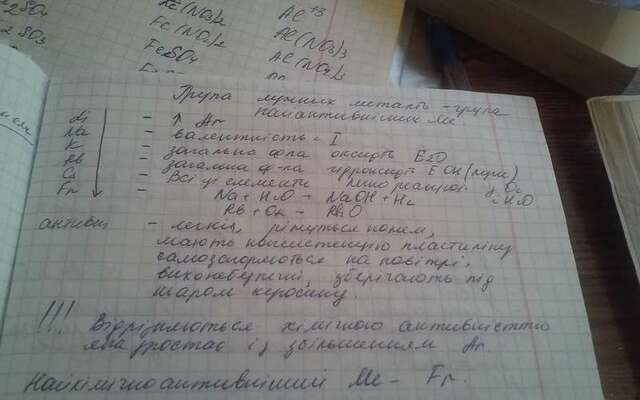 Fe(NO3)2
Al+3
2SO3
Fe(NO3)2
Al(NO3)3
FeSO4
Al(NO2)3
Група лужних металів - група
найактивніших Ме
Li - ↑ Ar
Na - валентність - I
K - загальна ф-ла оксидів E2O
Rb - загальна ф-ла гідроксидів EOH (луги)
Cs - Всі ці елементи реагують з O2
Fr - з H2O
Na + H2O → NaOH + H2
Rb + O2 → Rb2O
активні - легкі, ріжуться ножем,
мають консистенцію пластиліну
самозаймаються на повітрі,
вибухонебезпечні, зберігають під
шаром керосину.
!!! Відрізняються хімічною активністю
яка зростає із збільшенням Ar.
Найхімічноактивніший Ме - Fr.